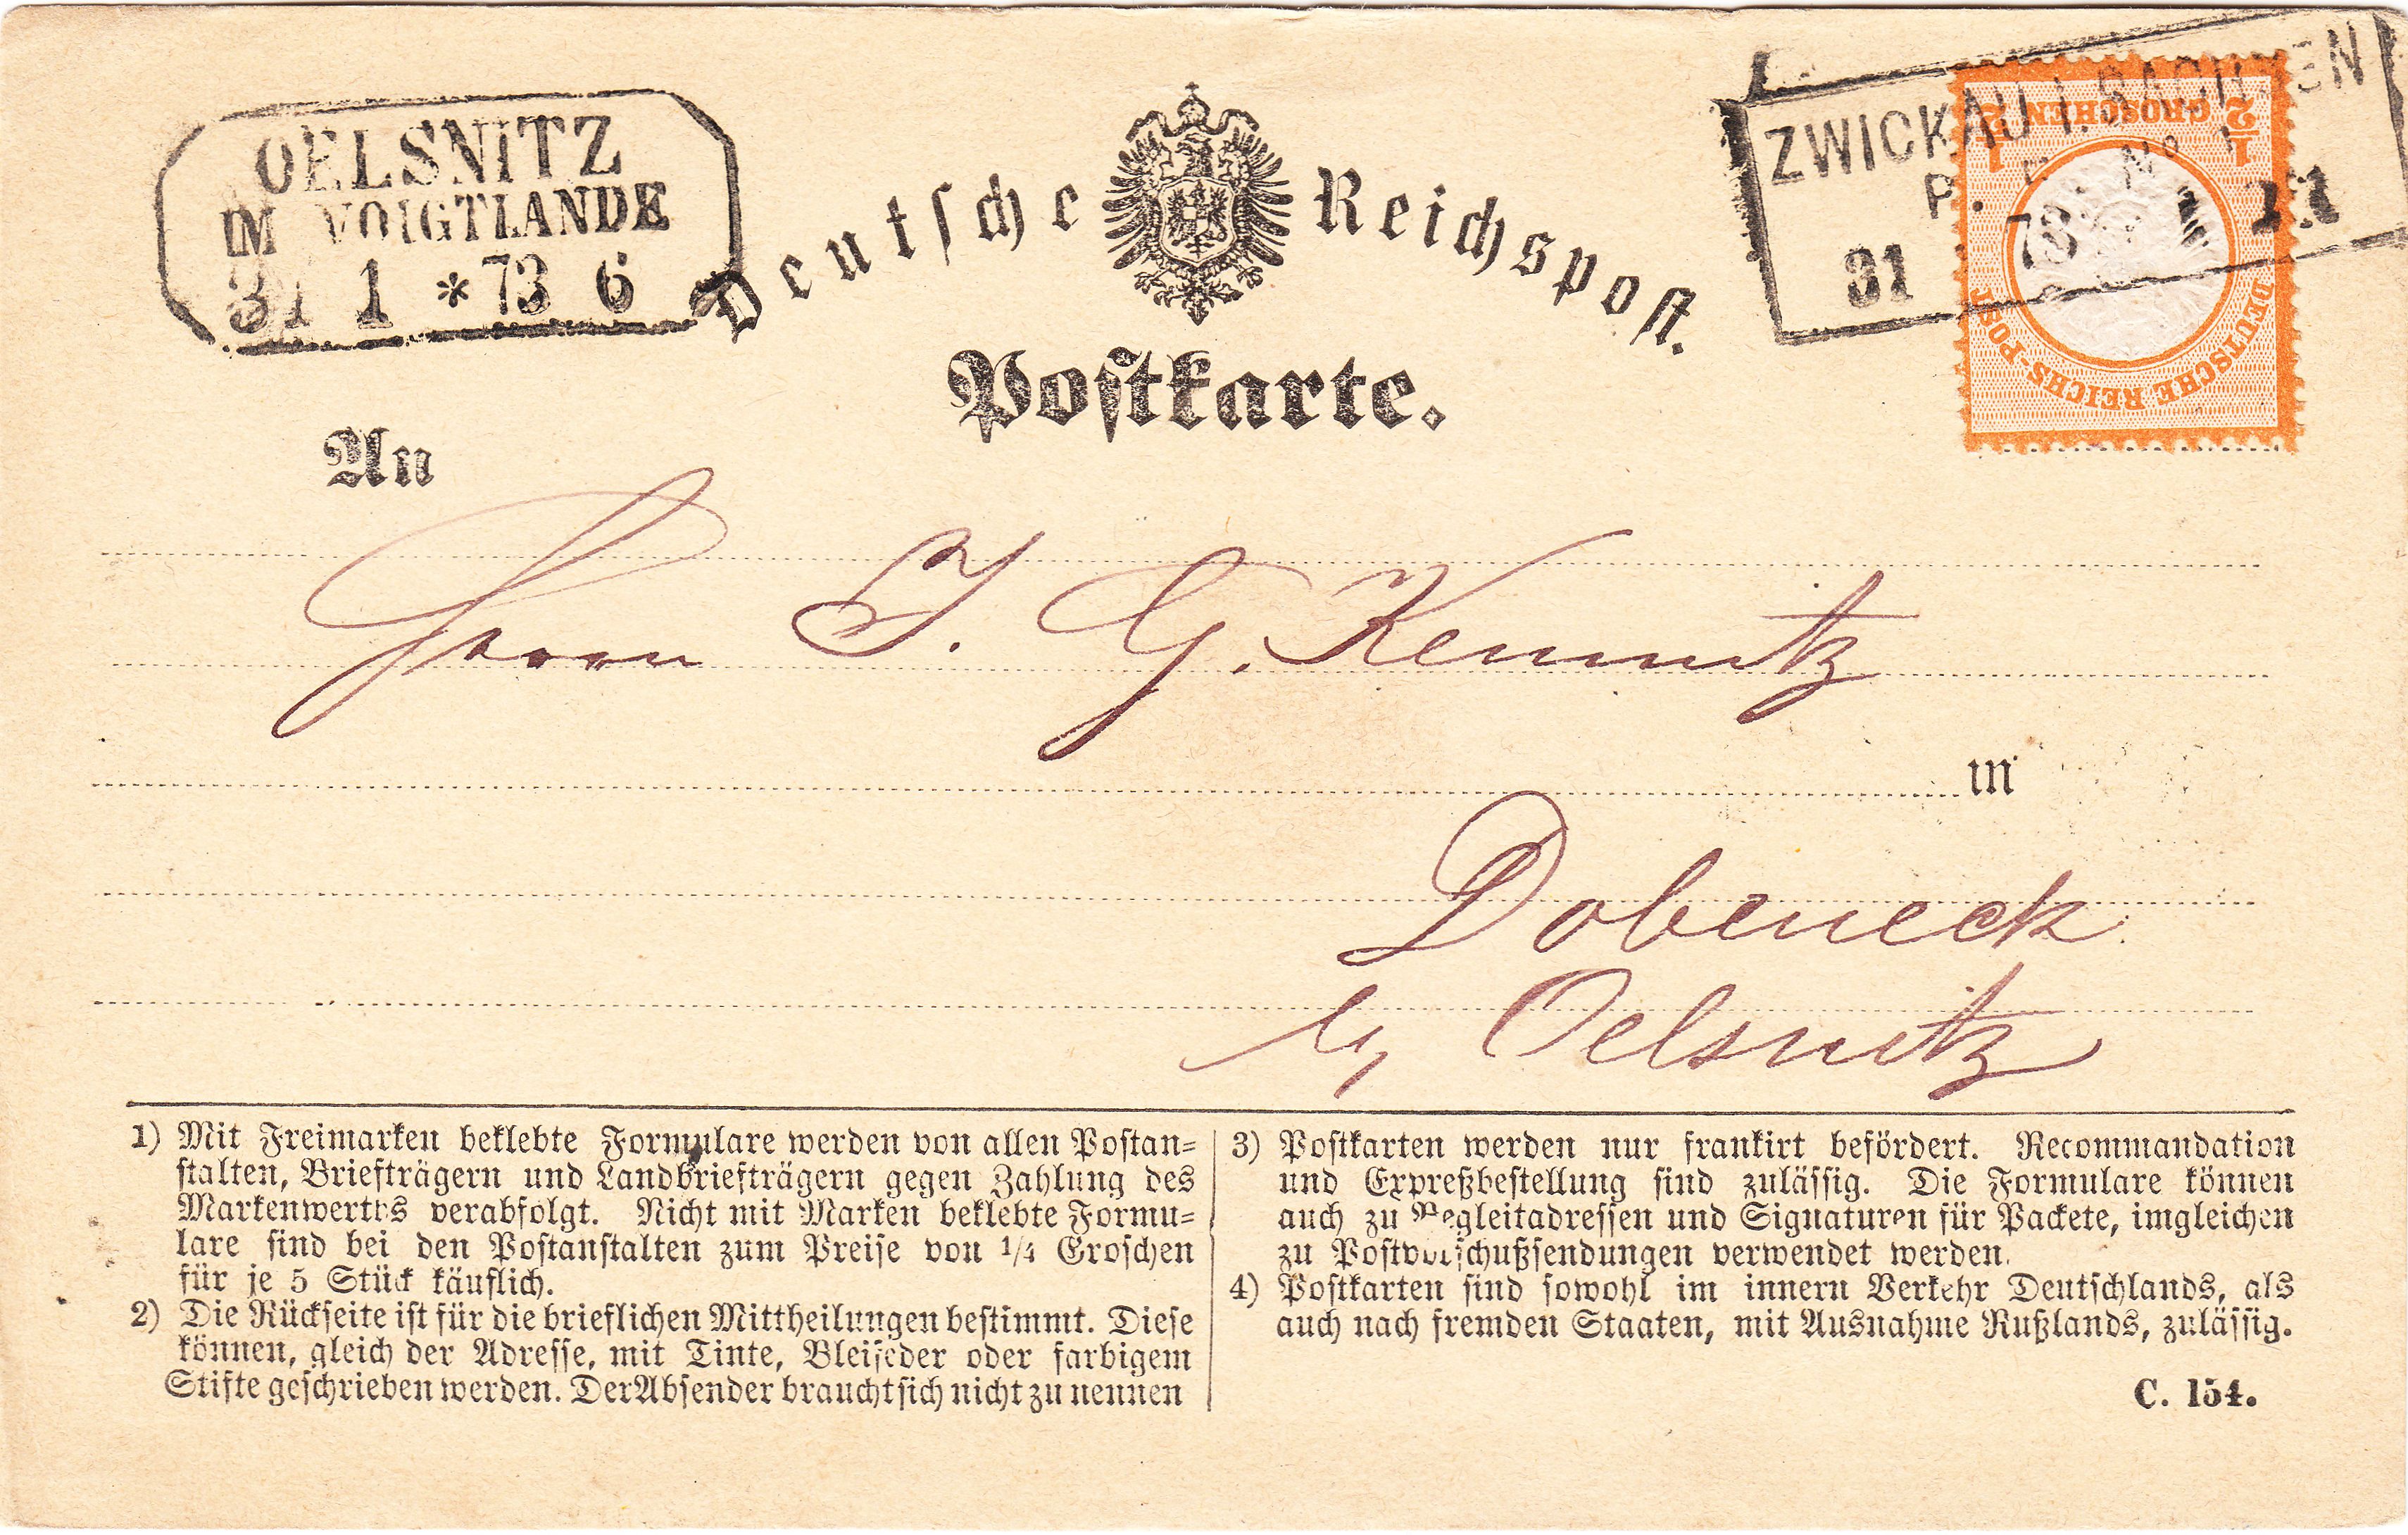 OELSNITZ
IM VOIGTLANDE
31 1 * 73 6
Deutsche Reichspost.
ZWICKAU I. SACHSEN
P. E. No 1
31 73 11
½ GROSCHEN ½
DEUTSCHE REICHS-POST
Postkarte.
An
Herrn J. G. Kemnitz
in
Dobeneck
b/ Oelsnitz
1) Mit Freimarken beklebte Formulare werden von allen Postan=
stalten, Briefträgern und Landbriefträgern gegen Zahlung des
Markenwerths verabfolgt. Nicht mit Marken beklebte Formu=
lare sind bei den Postanstalten zum Preise von 1/4 Groschen
für je 5 Stück käuflich.
2) Die Rückseite ist für die brieflichen Mittheilungen bestimmt. Diese
können, gleich der Adresse, mit Tinte, Bleifeder oder farbigem
Stifte geschrieben werden. Der Absender braucht sich nicht zu nennen
3) Postkarten werden nur frankirt befördert. Recommandation
und Expreßbestellung sind zulässig. Die Formulare können
auch zu Begleitadressen und Signaturen für Packete, imgleichen
zu Postvorschußsendungen verwendet werden.
4) Postkarten sind sowohl im innern Verkehr Deutschlands, als
auch nach fremden Staaten, mit Ausnahme Rußlands, zulässig.
C. 154.